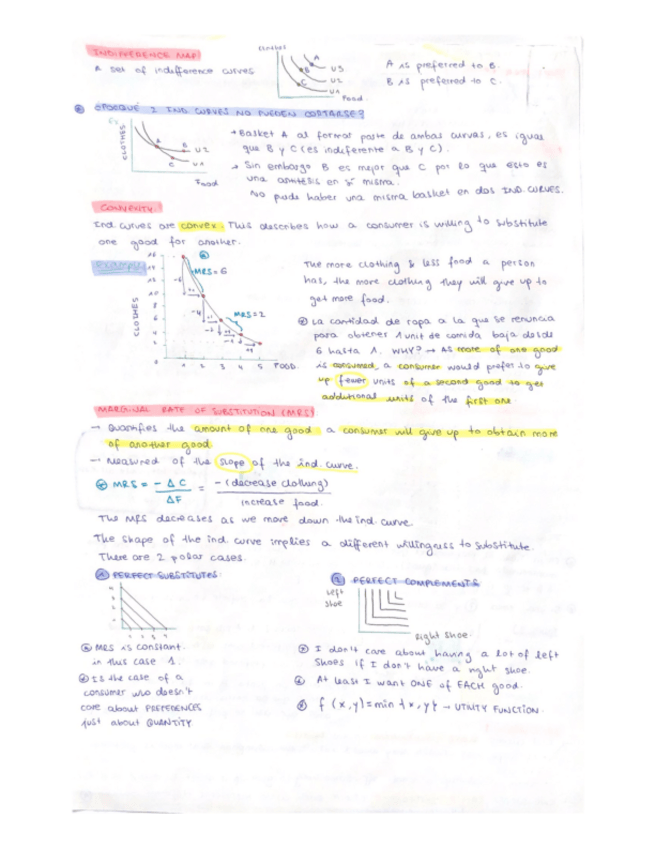 INDIFFERENCE MAP
A set of indifference curves
Clothes
A
B
C
U3
U2
U1
Food
A is preferred to B.
B is preferred to C.
¿PORQUÉ 2 IND CURVES NO PUEDEN CORTARSE?
CLOTHES
A
B
C
U2
U1
Food
→ Basket A al formar parte de ambas curvas, es igual
que B y C (es indiferente a B y C).
→ Sin embargo B es mejor que C por lo que esto es
una en sí misma.
No pude haber una misma basket en dos IND. CURVES.
CONVEXITY:
Ind curves are convex. This describes how a consumer is willing to substitute
one good for another.
example
CLOTHES
16
14
12
10
8
6
4
2
0
MRS = 6
-6
-4
MRS = 2
1 2 3 4 5 FOOD
The more clothing & less food a person
has, the more clothing they will give up to
get more food.
La cantidad de ropa a la que se renuncia
para obtener 1 unit de comida baja desde
6 hasta 1. WHY? → As more of one good
is consumed, a consumer would prefer to give
up fewer units of a second good to get
additional units of the first one
MARGINAL RATE OF SUBSTITUTION (MRS)
→ Quantifies the amount of one good a consumer will give up to obtain more
of another good
→ Measured of the slope of the ind. curve.
MRS = -ΔC / ΔF = -(decrease clothing) / increase food.
The MRS decreases as we move down the ind. curve.
The shape of the ind. curve implies a different willingness to substitute.
There are 2 polar cases.
1 PERFECT SUBSTITUTES:
MRS is constant.
in this case 1.
Is the case of a
consumer who doesn't
care about PREFERENCES
just about QUANTITY.
2 PERFECT COMPLEMENTS
left
shoe
right shoe
I don't care about having a lot of left
shoes if I don't have a right shoe.
At least I want ONE of EACH good.
f (x,y) = min {x,y} → UTILITY FUNCTION.